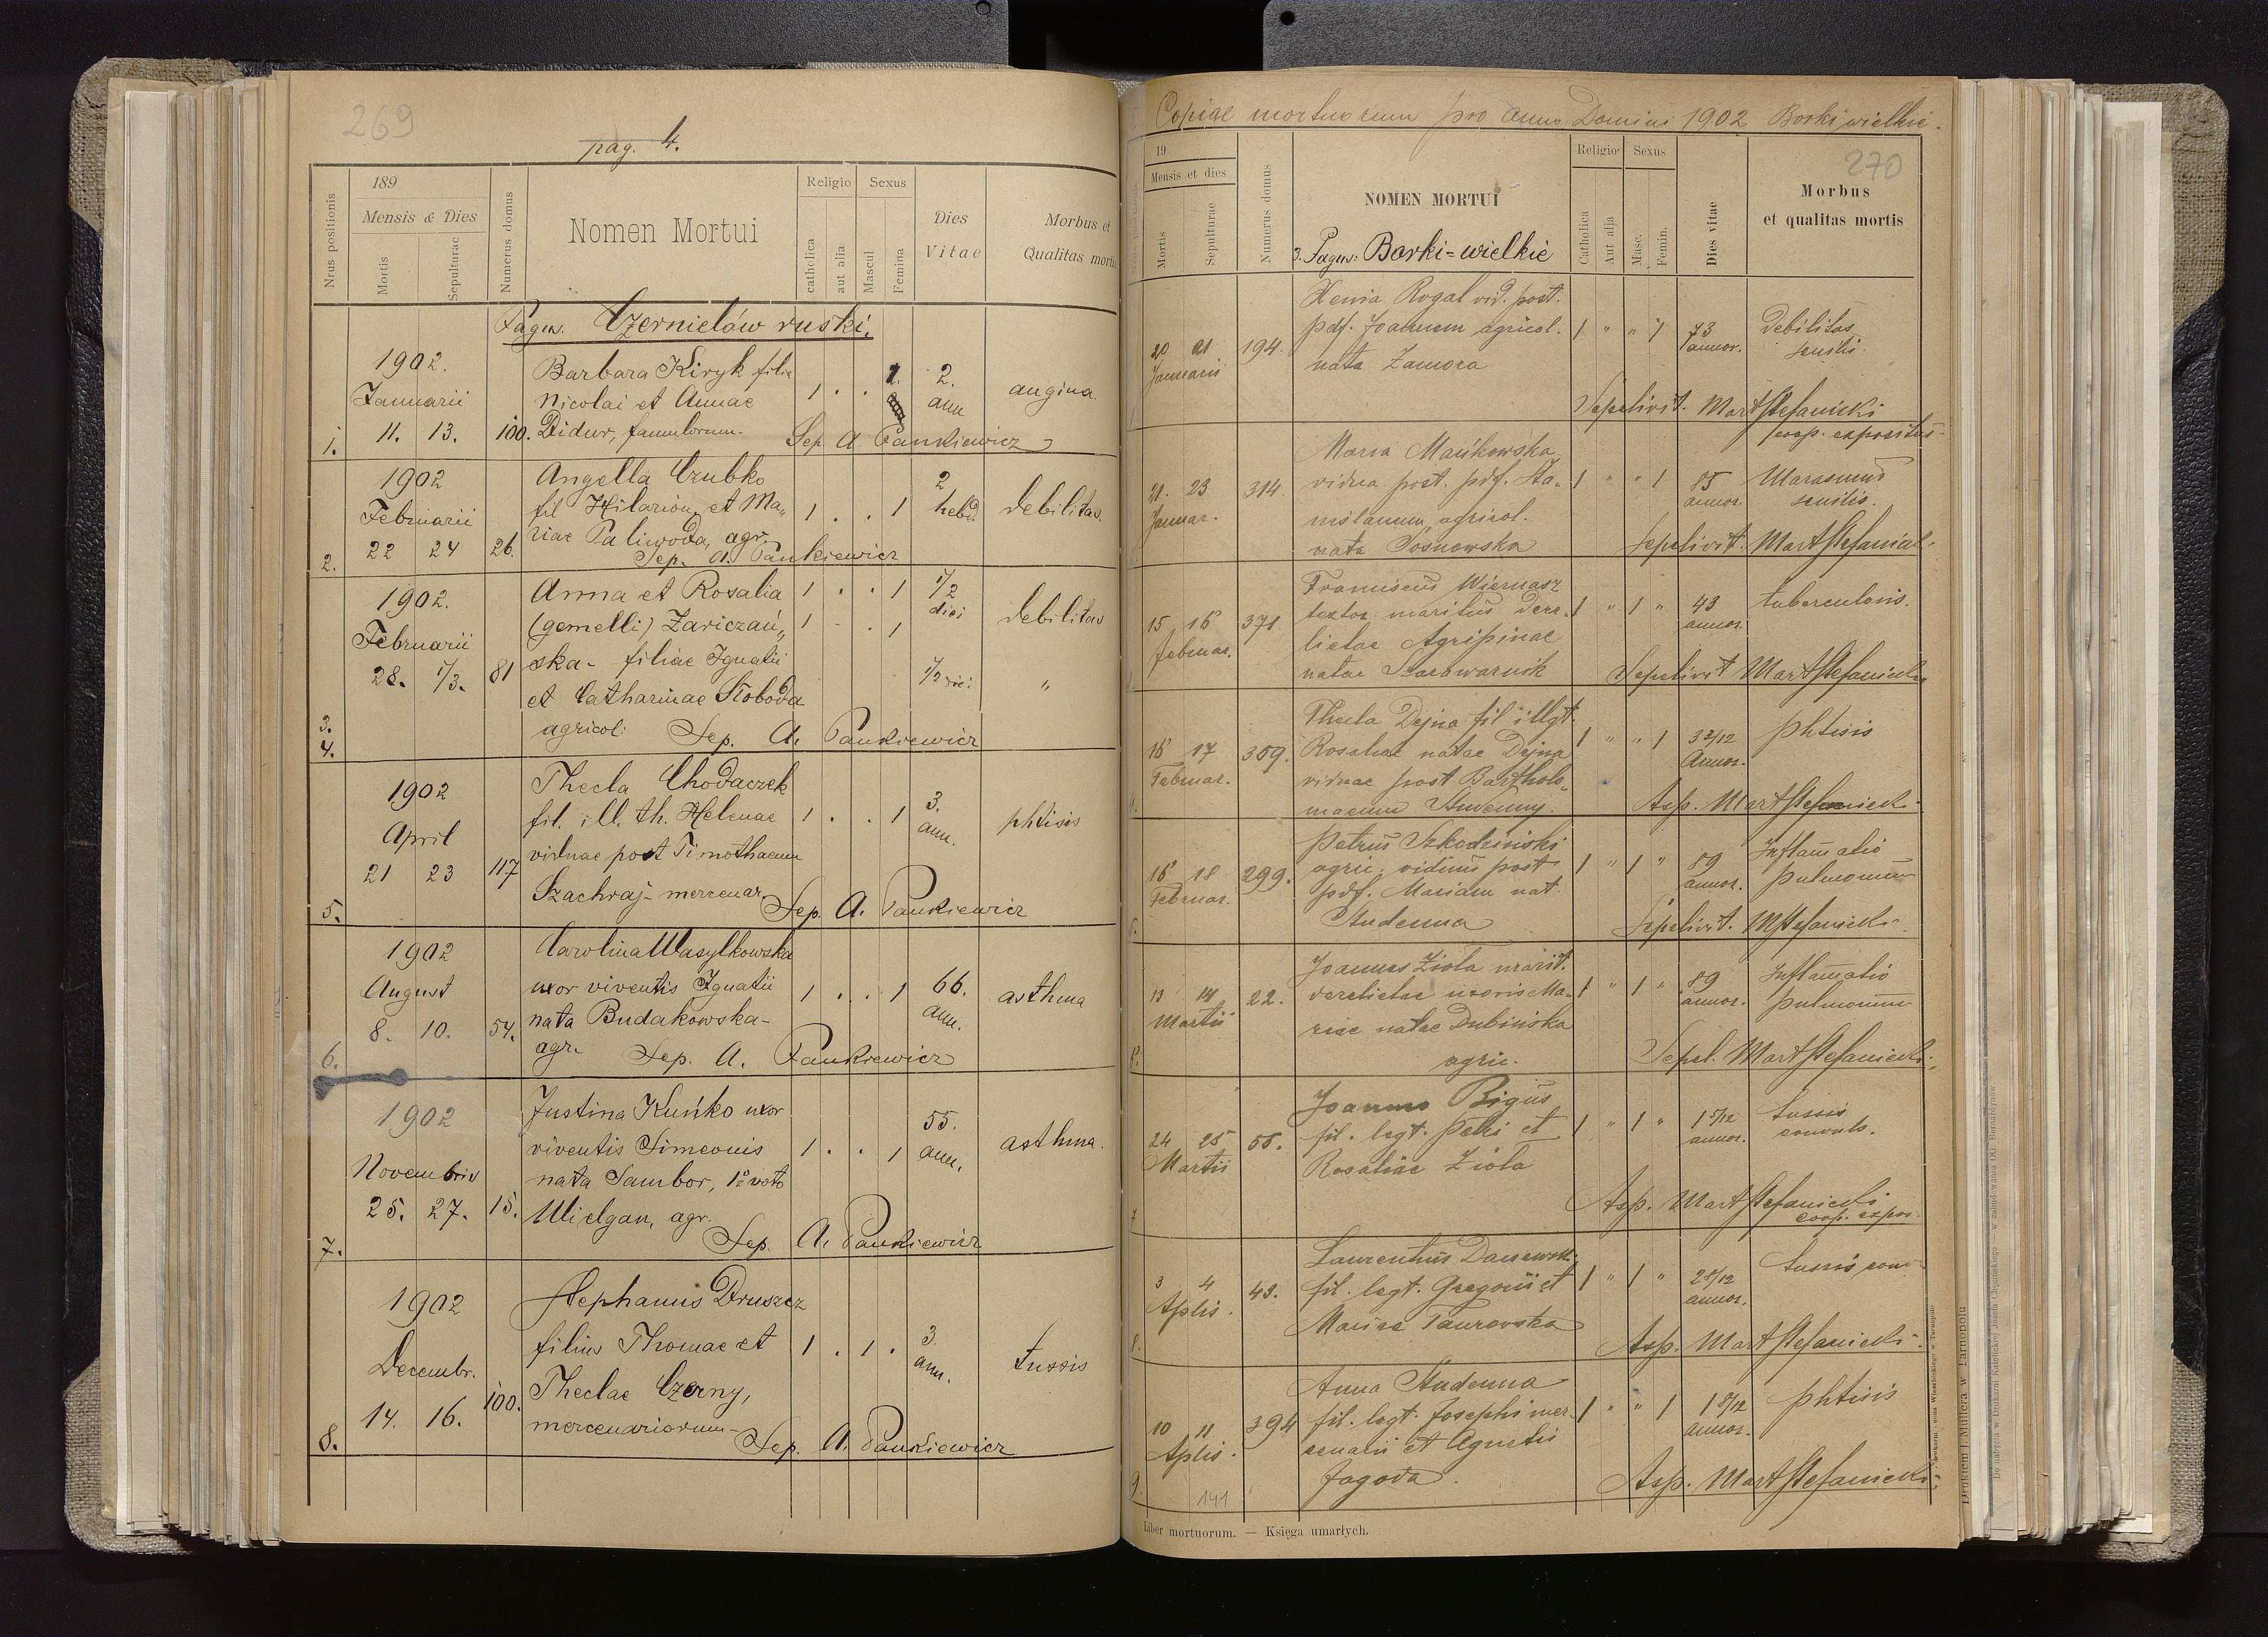 269
pag. 4.
Nrus positionis
189
Mensis & Dies
Mortis
Sepulturae
Numerus domus
Nomen Mortui
Religio
catholica
aut alia
Sexus
Mascul
Femina
Dies
Vitae
Morbus et
Qualitas mortis
Pagus. Czernielów ruski.
1902. Barbara Kiryk filia 1. 2.
Januarii Nicolai et Annae 1 . . ann angina.
1. 11. 13. 100. Didur, famulorum. Sep A. Pankiewicz
1902 Angella Czubko 2
Februarii fil Hilarion. et Ma„ 1 . . 1 hebd. debilitas.
2. 22 24 26. riae Paliwoda, agr.
Sep. A. Pankiewicz
1902. Anna et Rosalia 1 . . 1 1/2 diei
Februarii (gemelli) Zariczań„ 1 . . 1 debilitas
28. 1/3. 81 ska - filiae Ignatii 1/2 diei "
et Catharinae Słoboda
3. 4. agricol: Sep. A. Pankiewicz
1902 Thecla Chodaczek 3.
April fil. ill. th. Helenae 1 . . 1 ann. phtisis
21 23 117 viduae post Timothaeum
5. Szachraj - mercenar. Sep. A. Pankiewicz
1902 Carolina Wasylkowska
August uxor viventis Ignatii 1 . . 1 66. ann. asthma
8. 10. 54. nata Budakowska -
6. agr. Sep. A. Pankiewicz
1902 Justina Kuńko uxor 55.
Novembris viventis Simeonis 1 . . 1 ann. asthma.
nata Sambor, 1º voto
25. 27. 15. Wielgan, agr.
7. Sep. A. Pankiewicz
1902 Stephanus Druszcz
Decembr. filius Thomae et 1 . 1 . 3 ann. tussis
14. 16. 100. Theclae Czerny,
8. mercenariorum - Sep. A. Pankiewicz
Copiae mortuorum pro anno Domini 1902 Borki wielkie.
270
19
Mensis et dies
Mortis
Sepulturae
Numerus domus
NOMEN MORTUI
3. Pagus: Borki=wielkie
Religio
Catholica
Aut alia
Sexus
Masc.
Femin.
Dies vitae
Morbus
et qualitas mortis
Xenia Rogal vid. post.
20 21 194. pdf. Joannem agricol. 1 " " 1 73 annor. Debilitas senilis.
Januarii nata Zamora
Sepelivit. Mart Stefanicki
coop. expositus
Maria Mańkowska
21. 23 314. vidua post. pdf. Sta- 1 " " 1 85 annor. Marasmus senilis.
Januar. nislaum, agricol.
nata Sosnowska Sepelivit. Mart Stefanicki
Franciscus Wiernasz
15 16 371 textor maritus dere- 1 " 1 " 43 annor. tuberculosis.
Februar. lictae Agripinae
natae Skorowarnik Sepelivit Mart Stefanicki
Thecla Dejna fil illgt.
16 17 359. Rosaliae natae Dejna 1 " " 1 3 2/12 Annor. phtisis
Februar. viduae post Bartholo-
maeum Studenny. Asp. Mart Stefanicki
Petrus Szkodziński
16 18 299. agric. viduus post 1 " 1 " 89 annor. Inflamatio pulmonum
Februar. pdf. Mariam nat.
Studenna Sepelivit. M Stefanicki
Joannes Zioła marit.
13 14 22. derelictae uxoris Ma- 1 " 1 " 89 annor. Inflamatio pulmonum
Martii riae natae Dubińska
agric. Sepel. Mart Stefanicki
Joannes Bigus
24 25 55. fil. legt. Petri et 1 " 1 " 1 5/12 annor. tussis convuls.
Martii Rosaliae Zioła
7 Asp. Mart Stefanicki
coop. expos.
Laurentius
3 4 43. fil. legt. Gregorii et 1 " 1 " annor. tussis conv
Aplis. Mariae Taurovska
8. Asp. Mart Stefanicki
Anna Studenna
10 11 394 fil. legt. Josephi mer- 1 " " 1 annor. phtisis
Aplis. cenarii et
9. Jagoda. Asp. Mart Stefanicki
141
Liber mortuorum. — Księga umarłych.